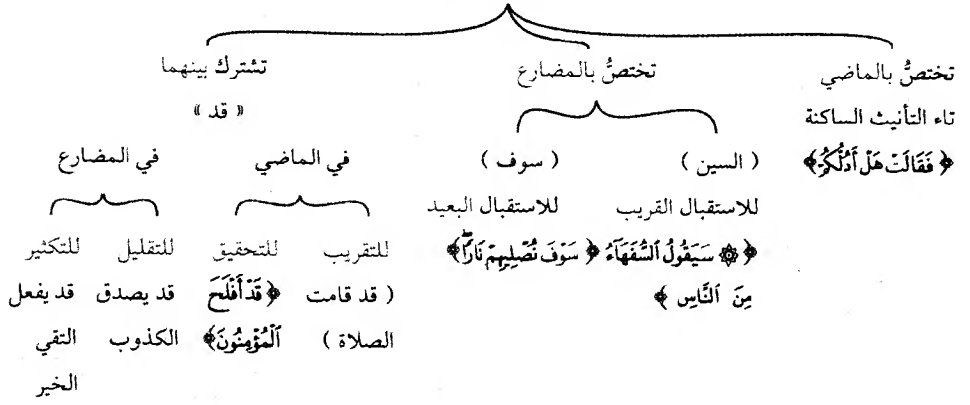 تختصُّ بالماضي
تاء التأنيث الساكنة
﴿ فَقَالَتْ هَلْ أَدُلُّكُمْ ﴾
تختصُّ بالمضارع
( السين )
للاستقبال القريب
﴿ ۞ سَيَقُولُ ٱلسُّفَهَآءُ
مِنَ ٱلنَّاسِ ﴾
( سوف )
للاستقبال البعيد
﴿ سَوْفَ نُصْلِيهِمْ نَارًاۖ ﴾
تشترك بينهما
« قد »
في الماضي
للتقريب
( قد قامت
الصلاة )
للتحقيق
﴿ قَدْ أَفْلَحَ
ٱلْمُؤْمِنُونَ ﴾
في المضارع
للتقليل
قد يصدق
الكذوب
للتكثير
قد يفعل
التقي
الخير